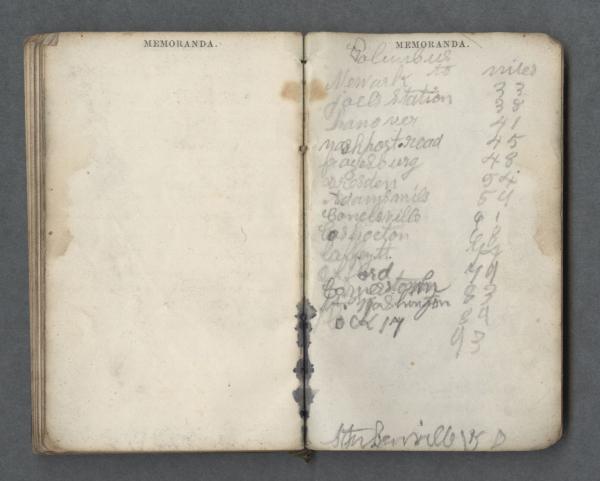 MEMORANDA.
MEMORANDA.
Columbus
to miles
Newark 33
Joels Station 38
Hanover 41
nashport road 45
frazeysburg 48
Dresden 54
Adamsmils 59
Conelsvills 61
Coshocton 68
Lafaytt
ord 79
83
Washington 89
LOCK 17 93
Stu Benvills 150